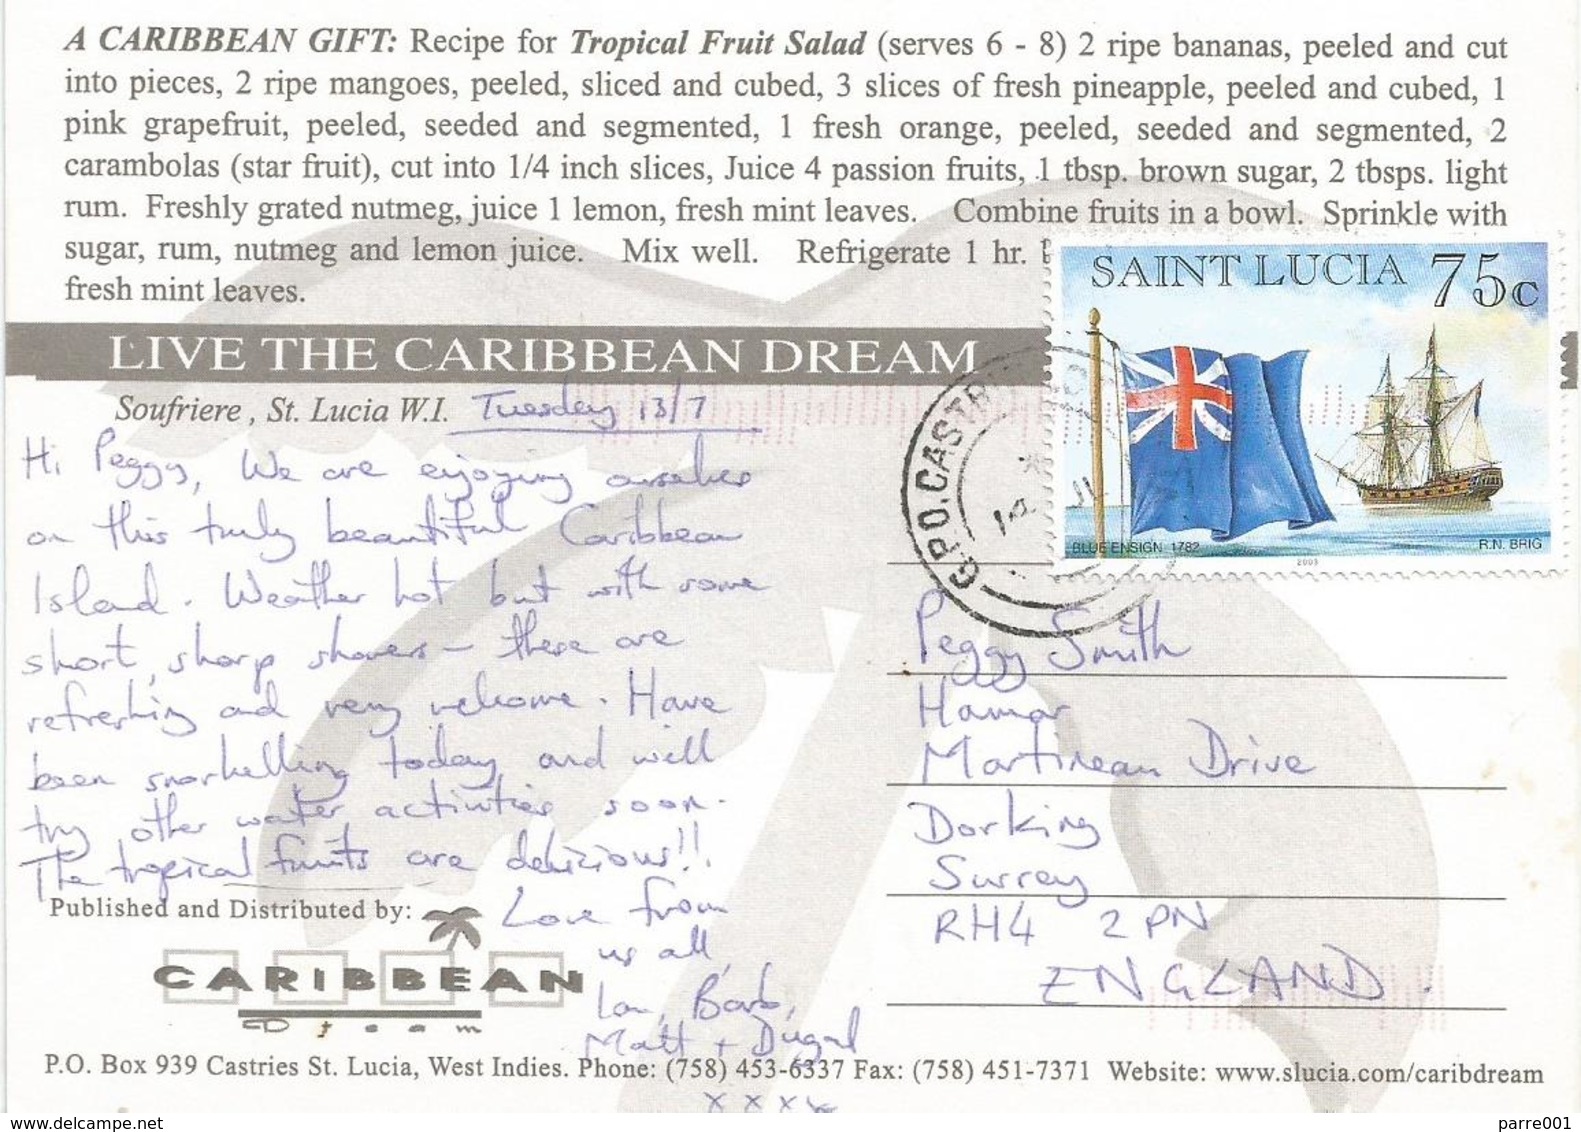 A CARIBBEAN GIFT: Recipe for Tropical Fruit Salad (serves 6 - 8) 2 ripe bananas, peeled and cut
into pieces, 2 ripe mangoes, peeled, sliced and cubed, 3 slices of fresh pineapple, peeled and cubed, 1
pink grapefruit, peeled, seeded and segmented, 1 fresh orange, peeled, seeded and segmented, 2
carambolas (star fruit), cut into 1/4 inch slices, Juice 4 passion fruits, 1 tbsp. brown sugar, 2 tbsps. light
rum. Freshly grated nutmeg, juice 1 lemon, fresh mint leaves. Combine fruits in a bowl. Sprinkle with
sugar, rum, nutmeg and lemon juice. Mix well. Refrigerate 1 hr.
fresh mint leaves.
SAINT LUCIA 75c
BLUE ENSIGN 1782
2003
R.N. BRIG
LIVE THE CARIBBEAN DREAM
G.P.O. CASTR
14 JL
Soufriere, St. Lucia W.I. Tuesday 13/7
Hi Peggy, We are enjoying ourselves
on this truly beautiful Caribbean
Island. Weather hot but with some
short, sharp showers - these are
refreshing and very welcome. Have
been snorkelling today and will
try other water activities soon.
The tropical fruits are delicious!!
Love from
us all,
Ian, Barb,
Matt + Dugal
x x x x
Peggy Smith
Hamar
Martineau Drive
Dorking
Surrey
RH4 2PN
ENGLAND.
Published and Distributed by:
CARIBBEAN
Dream
P.O. Box 939 Castries St. Lucia, West Indies. Phone: (758) 453-6337 Fax: (758) 451-7371 Website: www.slucia.com/caribdream
www.delcampe.net
parre001